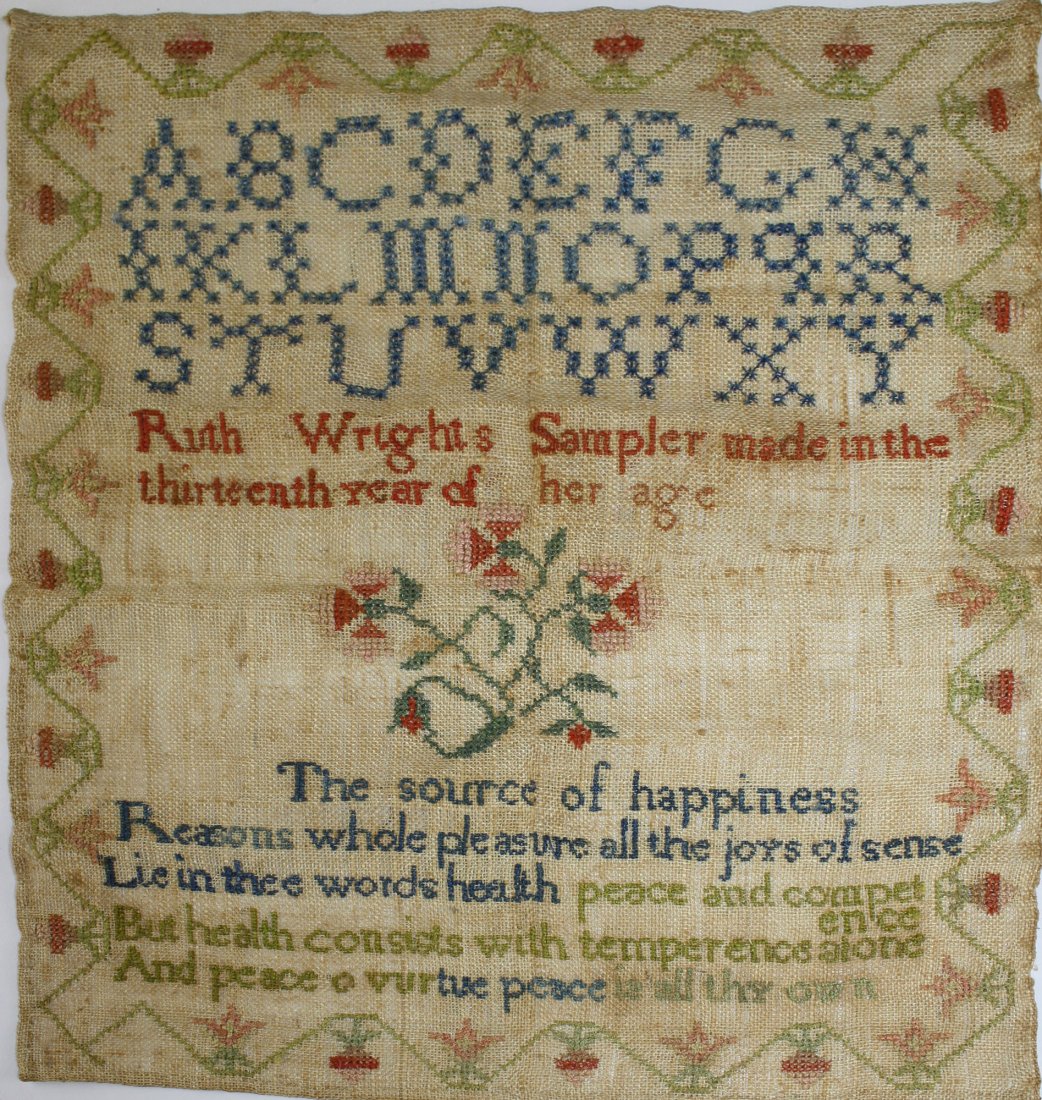 A B C D E F G H
I K L M N O P Q R
S T U V W X Y
Ruth Wrights Sampler made in the
thirteenth year of her age
The source of happiness
Reasons whole pleasure all the joys of sense
Lie in thee words health peace and compet
ence
But health consists with temperence alone
And peace o virtue peace is all thy own